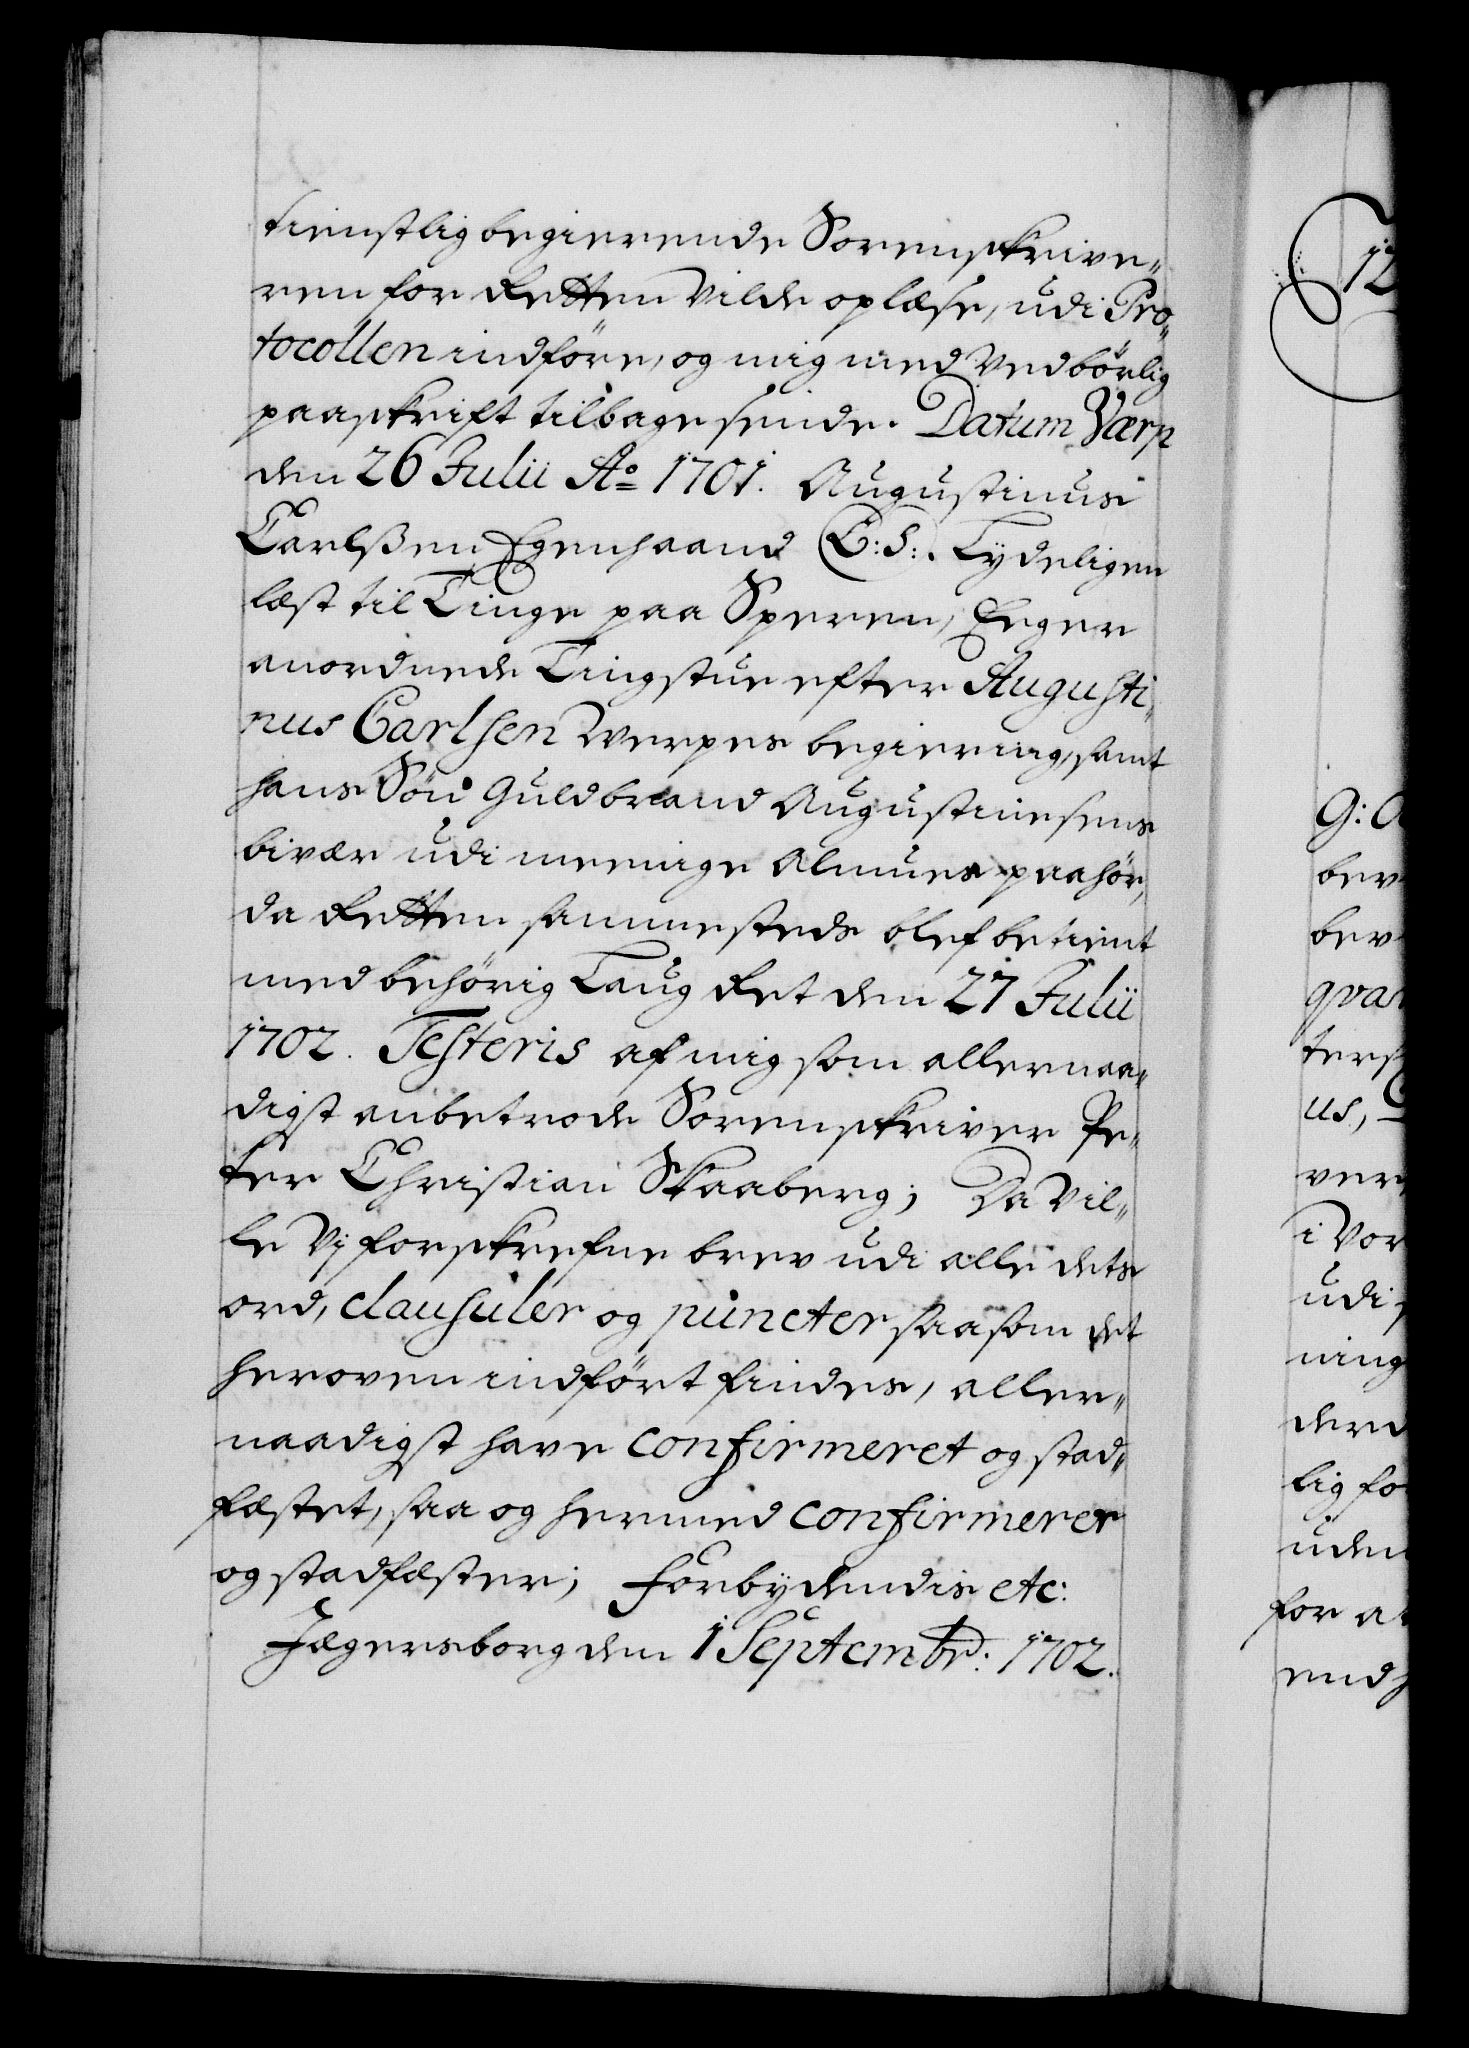 tienstlig begierende Sorenskrive„
ren for Retten vilde oplæse, udi Pro„
tocollen indføre, og mig med vedbørlig
paaskrift tilbage sende. Datum Værp
den 26 Julii A° 1701. Augustinus
Carlßen Egenhaand (L: S:. Tydeligen
læst til Tinge paa Speren, Eeger
anordnede Tingstue efter Augusti„
nus Carlsen Werpes begiering, samt
hans Søn Guldbrand Augustinesens
bivær udi meenige Almues paahør,
da Retten sammesteds blef betient
med behørig Laug Ret den 27 Julii
1702. Testeris af mig som allernaa„
digst anbetrode Sorenskriver Pe„
ter Christian Skaaberg; Da vil„
le Vj forskrefne brev udi alle dets
ord, clausuler og puncter saasom det
heroven indført findes, aller„
naadigst have confirmeret og stad„
fæstet, saa og hermed confirmerer
og stadfæster; Forbydendis etc:
Jægersborg den 1 Septembr: 1702.
12
G: A
bev
bev
qvar
ters
us,
ver
i Vor
udi
ning
derd
lig fo
uden
for a
end